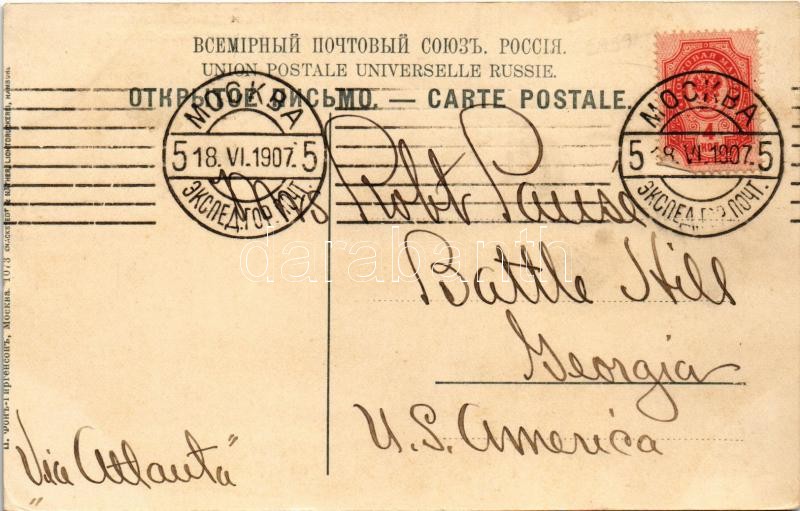 ВСЕМІРНЫЙ ПОЧТОВЫЙ СОЮЗЪ. РОССІЯ.
UNION POSTALE UNIVERSELLE RUSSIE.
ОТКРЫТОЕ ПИСЬМО. — CARTE POSTALE.
МОСКВА
5 18. VI. 1907. 5
ЭКСПЕД. ГОР. ПОЧТ.
МОСКВА
5 18. VI. 1907. 5
ЭКСПЕД. ГОР. ПОЧТ.
4
Mrs Robt
Battle Hill
Georgia
U.S. America
Via Atlanta
darabanth
П. Фонъ-Гиргенсонъ, Москва. 1073